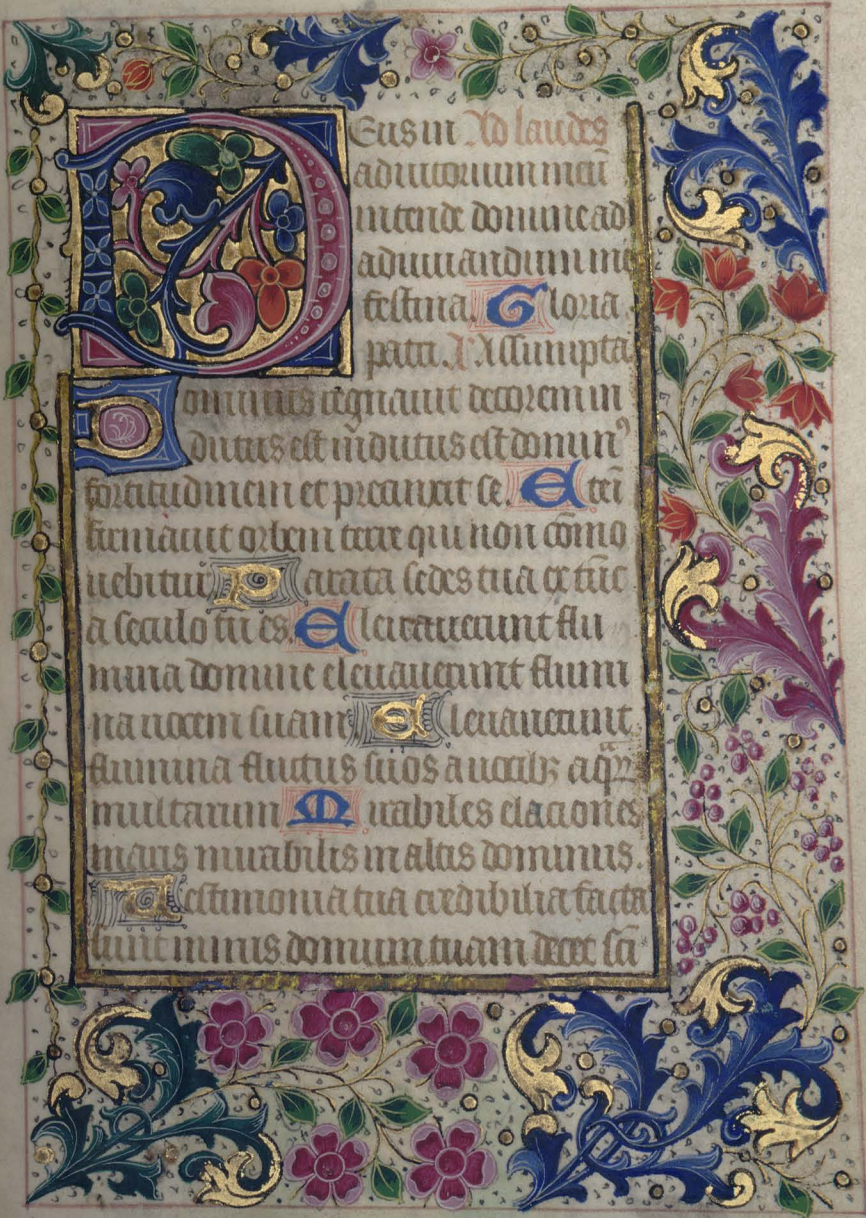 Deus in Ad laudes
adiutorium meū
intende domine ad
adiuuandum me
festina. Gloria
patri. Assumpta
Dominus regnauit decorem in
dutus est indutus est domin⁹
fortitudinem et precinxit se. Eteī
firmauit orbem terre qui non cōmo
uebitur Parata sedes tua ex tūc
a seculo tu es. Eleuauerunt flu
mina domine eleuauerunt flumi
na uocem suam Eleuauerunt
flumina fluctus suos a uocibꝫ aqᷓꝝ
multarum Mirabiles elaciones
maris mirabilis in altis dominus.
Testimonia tua credibilia facta
sunt nimis domum tuam decet sci